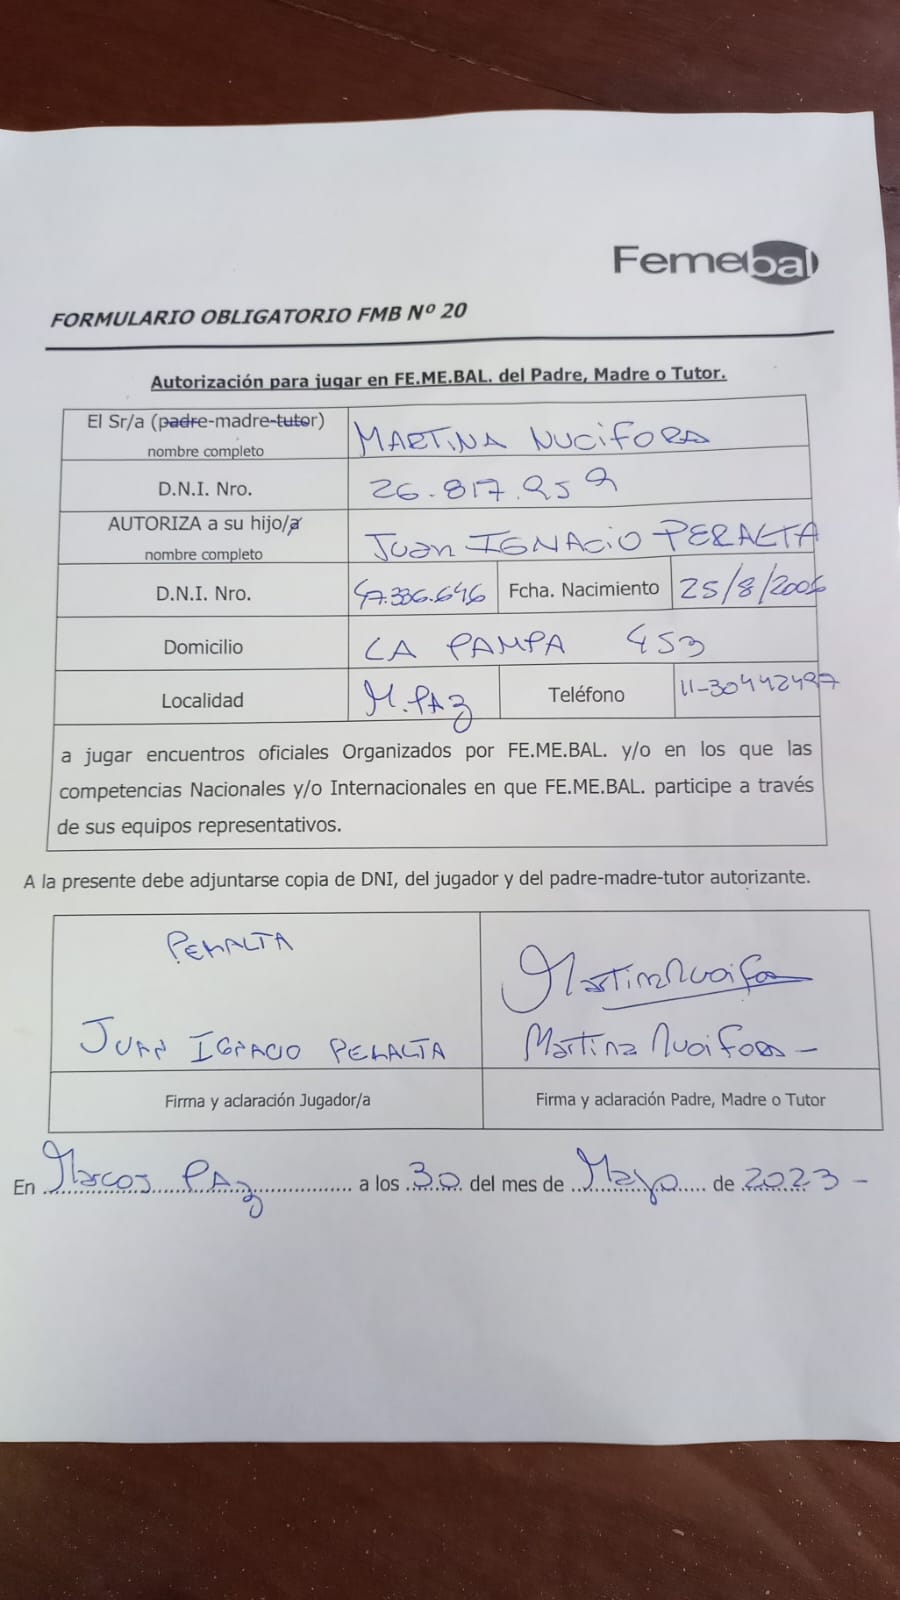 Femebal
FORMULARIO OBLIGATORIO FMB Nº 20
Autorización para jugar en FE.ME.BAL. del Padre, Madre o Tutor.
El Sr/a (padre-madre-tutor)
nombre completo
MARTINA NUCIFORA
D.N.I. Nro.
26.817.959
AUTORIZA a su hijo/a
nombre completo
Juan IGNACIO PERALTA
D.N.I. Nro.
47.336.646
Fcha. Nacimiento
25/8/2006
Domicilio
LA PAMPA 453
Localidad
M. PAZ
Teléfono
11-30442497
a jugar encuentros oficiales Organizados por FE.ME.BAL. y/o en los que las
competencias Nacionales y/o Internacionales en que FE.ME.BAL. participe a través
de sus equipos representativos.
A la presente debe adjuntarse copia de DNI, del jugador y del padre-madre-tutor autorizante.
PERALTA
JUAN IGNACIO PERALTA
Firma y aclaración Jugador/a
Martina Nucifora
Martina Nucifora -
Firma y aclaración Padre, Madre o Tutor
En Marcos PAZ a los 30 del mes de Mayo de 2023 -